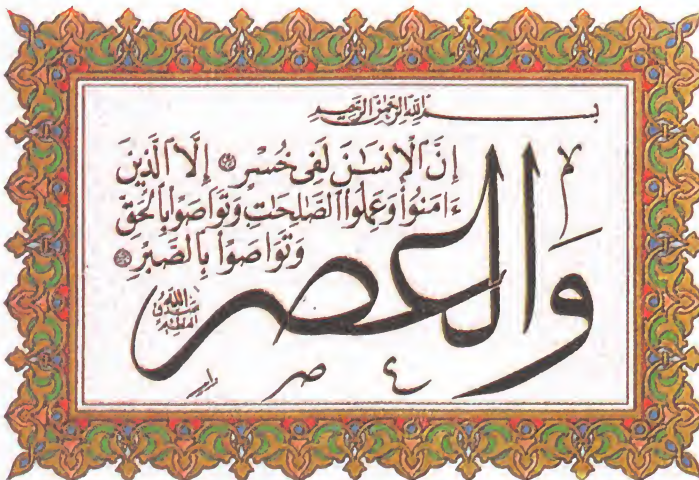 بسم الله الرحمن الرحيم
والعصر
إِنَّ ٱلْإِنسَٰنَ لَفِى خُسْرٍ ۝ إِلَّا ٱلَّذِينَ
ءَامَنُوا۟ وَعَمِلُوا۟ ٱلصَّٰلِحَٰتِ وَتَوَاصَوْا۟ بِٱلْحَقِّ
وَتَوَاصَوْا۟ بِالصَّبْرِ ۝
صدق الله العظيم